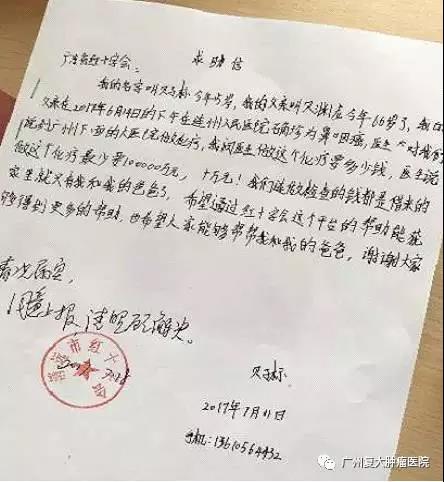 求助信
广东省红十字会：
我的名字叫 今年15岁，我的父亲叫 今年66岁了，我的
父亲在2017年6月14日的下午在连州人民医院确诊为鼻咽癌，医生 对我们
院到广州下面的大医院做化疗，我问医生做这个化疗要多少钱，医生说
做这个化疗最少要100000万元，十万元！我们连做检查的钱都是借来的
家里就只有我和我的爸爸了，希望通过红十字会这个平台的帮助能
够得到更多的帮助，也希望大家能够帮帮我和我的爸爸，谢谢大家
情况属实，
同意上报，请 解决。
市红十
2017年7月11日
手机：13610564432
广州复大肿瘤医院